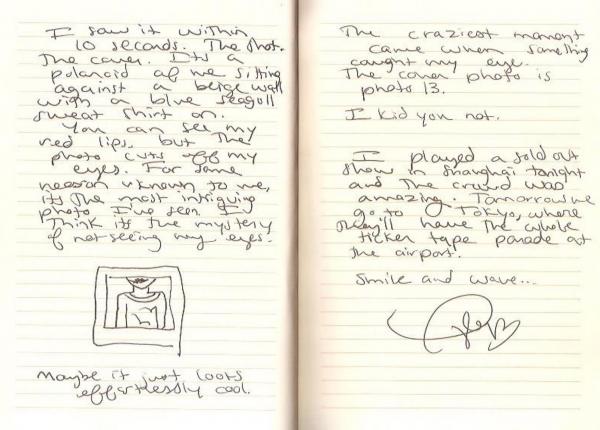 I saw it within
10 seconds. The shot.
The cover. It's a
polaroid of me sitting
against a beige wall
with a blue seagull
sweat shirt on.
You can see my
red lips, but the
photo cuts off my
eyes. For some
reason unknown to me,
it's the most intriguing
photo I've seen. I
think it's the mystery
of not seeing my eyes.
Maybe it just looks
effortlessly cool.
The craziest moment
came when something
caught my eye.
The cover photo is
photo 13.
I kid you not.
I played a sold out
show in Shanghai tonight
and the crowd was
amazing. Tomorrow we
go to Tokyo, where
they'll have the whole
ticker tape parade at
the airport.
Smile and wave...